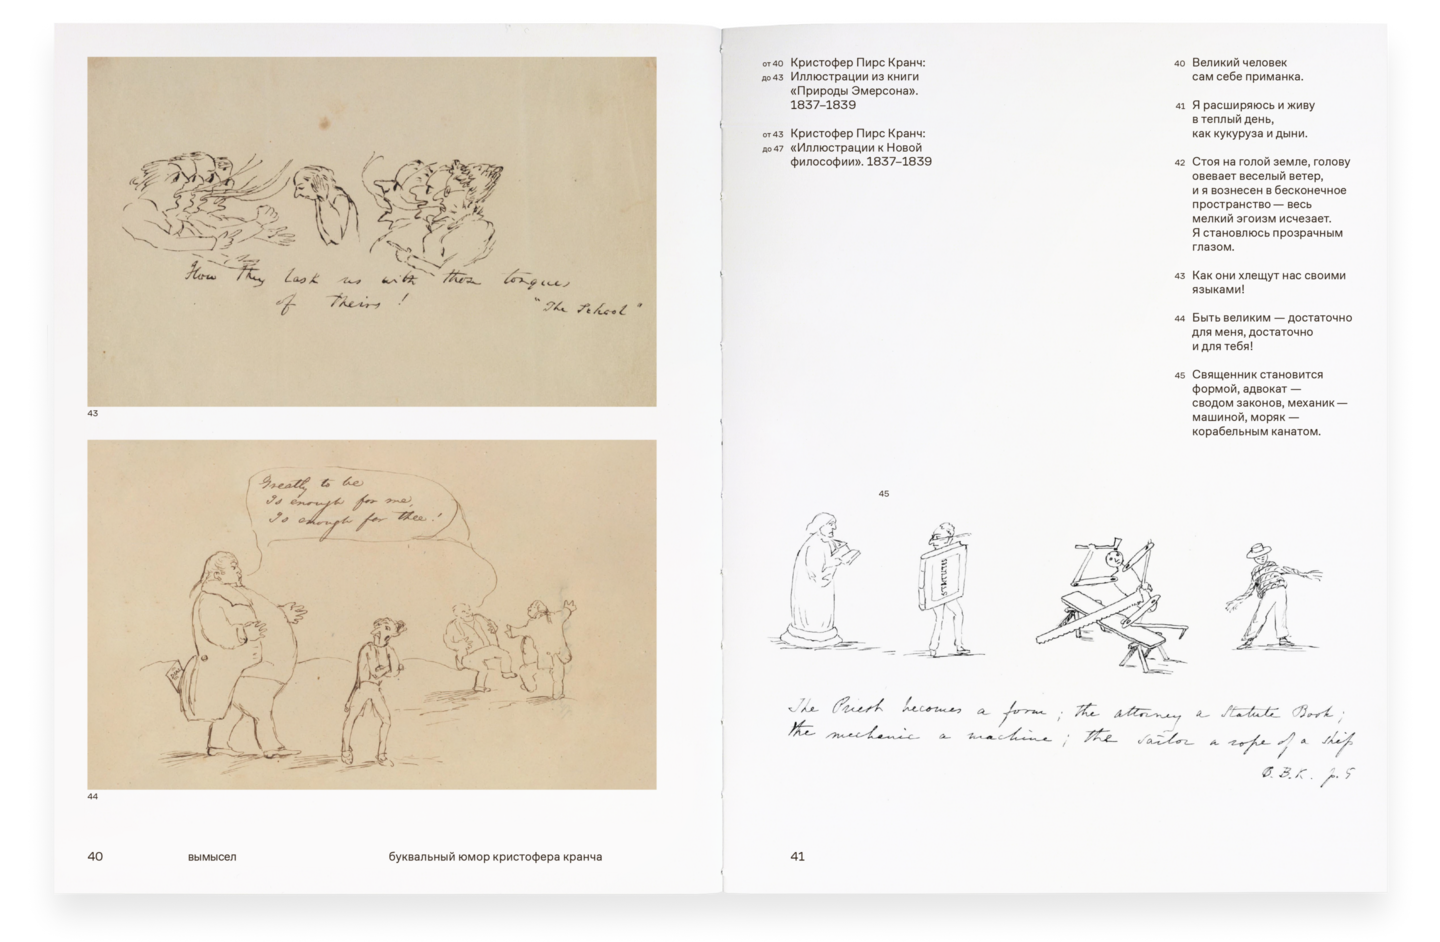 How they lash us with those tongues
of theirs!
"The School"
43
Greatly to be
Is enough for me,
Is enough for thee!
44
40 вымысел буквальный юмор кристофера кранча
от 40 Кристофер Пирс Кранч:
до 43 Иллюстрации из книги
«Природы Эмерсона».
1837–1839
от 43 Кристофер Пирс Кранч:
до 47 «Иллюстрации к Новой
философии». 1837–1839
40 Великий человек
сам себе приманка.
41 Я расширяюсь и живу
в теплый день,
как кукуруза и дыни.
42 Стоя на голой земле, голову
овевает веселый ветер,
и я вознесен в бесконечное
пространство — весь
мелкий эгоизм исчезает.
Я становлюсь прозрачным
глазом.
43 Как они хлещут нас своими
языками!
44 Быть великим — достаточно
для меня, достаточно
и для тебя!
45 Священник становится
формой, адвокат —
сводом законов, механик —
машиной, моряк —
корабельным канатом.
45
STATUTES
The Priest becomes a form; the attorney a Statute Book;
the mechanic a machine; the sailor a rope of a ship
p. 5
41